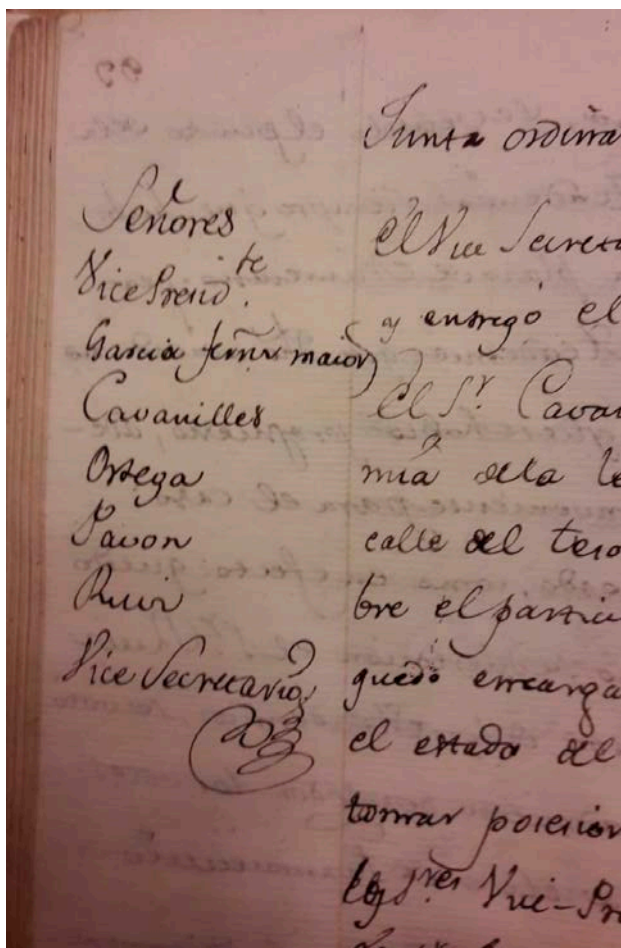 Junta ordina
Señores
Vice Presid.te
Garcia Fern.z maior
Cavanilles
Ortega
Pavon
Ruiz
Vice Secretario
el Vice Secreta
y entregó el
el S.r Cavan
mia dela
calle del teso
bre el particu
quedó encarga
el estado del
tomar posesion
los S.res Vice-Pre